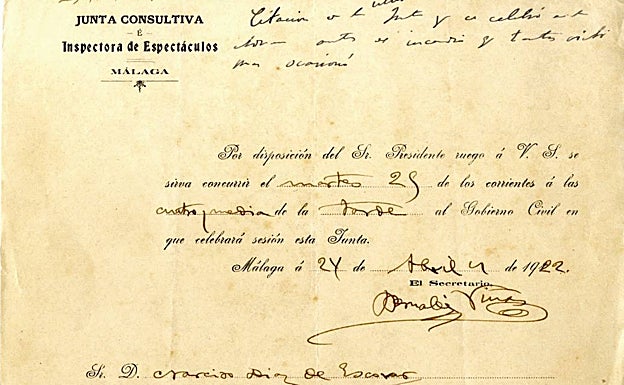 JUNTA CONSULTIVA
É
Inspectora de Espectáculos
MÁLAGA
Citación a la Junta q se celebró
horas antes el incendio q tantas
mas ocasionó
Por disposición del Sr. Presidente ruego á V. S. se
sirva concurrir el martes 25 de los corrientes á las
cuatro y media de la tarde al Gobierno Civil en
que celebrará sesión esta Junta.
Málaga á 24 de Abril de 1922.
El Secretario
Sr. D. Narciso Diaz de Escovar